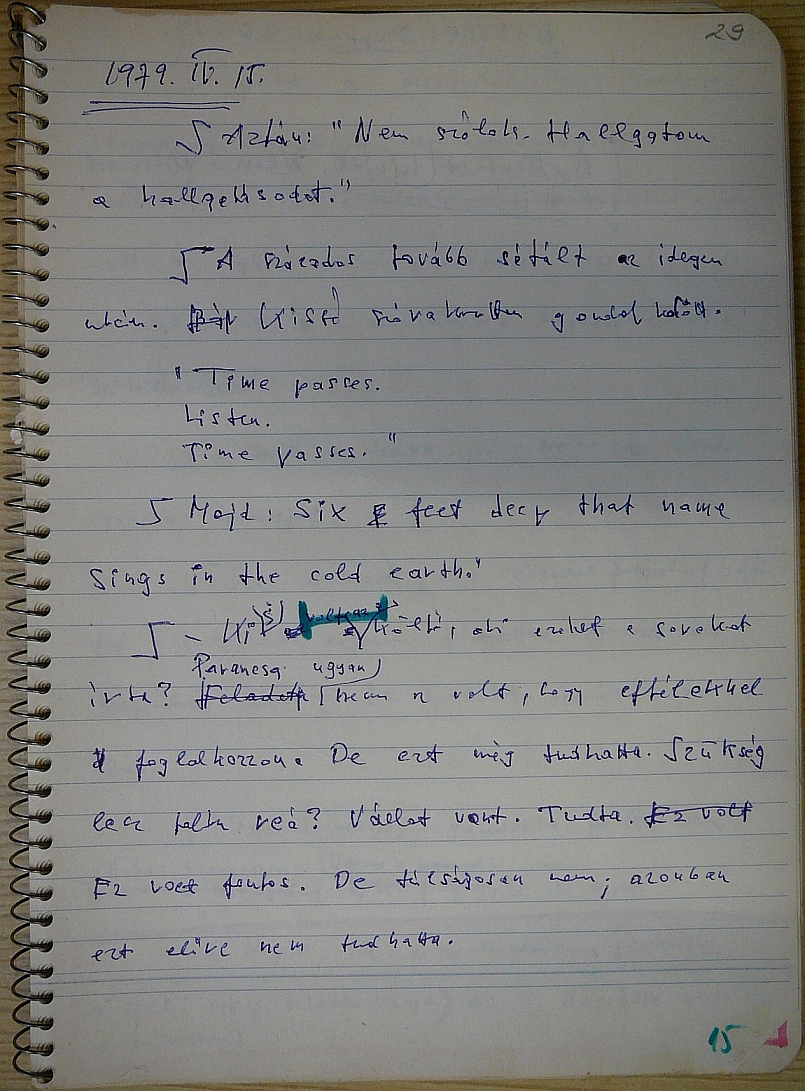 29
1979. IV. 15.
Aztán: "Nem szólok. Hallgatom
a hallgatásodat."
A százados tovább sétált az idegen
után. Kissé szórakozottan gondolkodott.
"Time passes.
Listen.
Time passes."
Majd: Six feet deep that name
sings in the cold earth."
- Ki volt az a költő, aki ezeket a sorokat
Parancsa ugyan
írta? Feladata nem volt, hogy effélékkel
foglalkozzon. De ezt még tudhatta. Szükség
lesz reá? Vállat vont. Tudta. Ez volt
Ez volt fontos. De túlságosan nem; azonban
ezt előre nem tudhatta.
15